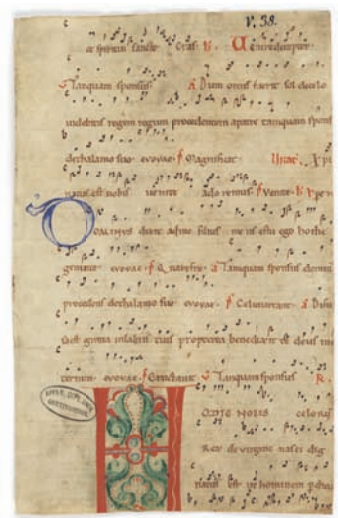 V. 38.
et spiritui sancto Cras
Tanquam sponsus Dum ortus fuerit sol de celo
videbitis regem regum procedentem a patre tanquam spons
de thalamo suo evovae Magnificat Xpi
natus est nobis venite adoremus Venite
Dominus dixit ad me filius me us es tu ego hodie
genui te evovae Tanquam sponsus domin
procedens de thalamo suo evovae Celi enarrant Diffu
sa est gratia in labiis tuis propterea benedixit te deus in e
ternum evovae Eructavit Tanquam sponsus R
HODIE NOBIS celorum
Rex de virgine nasci dig
natus est ut hominem perdi